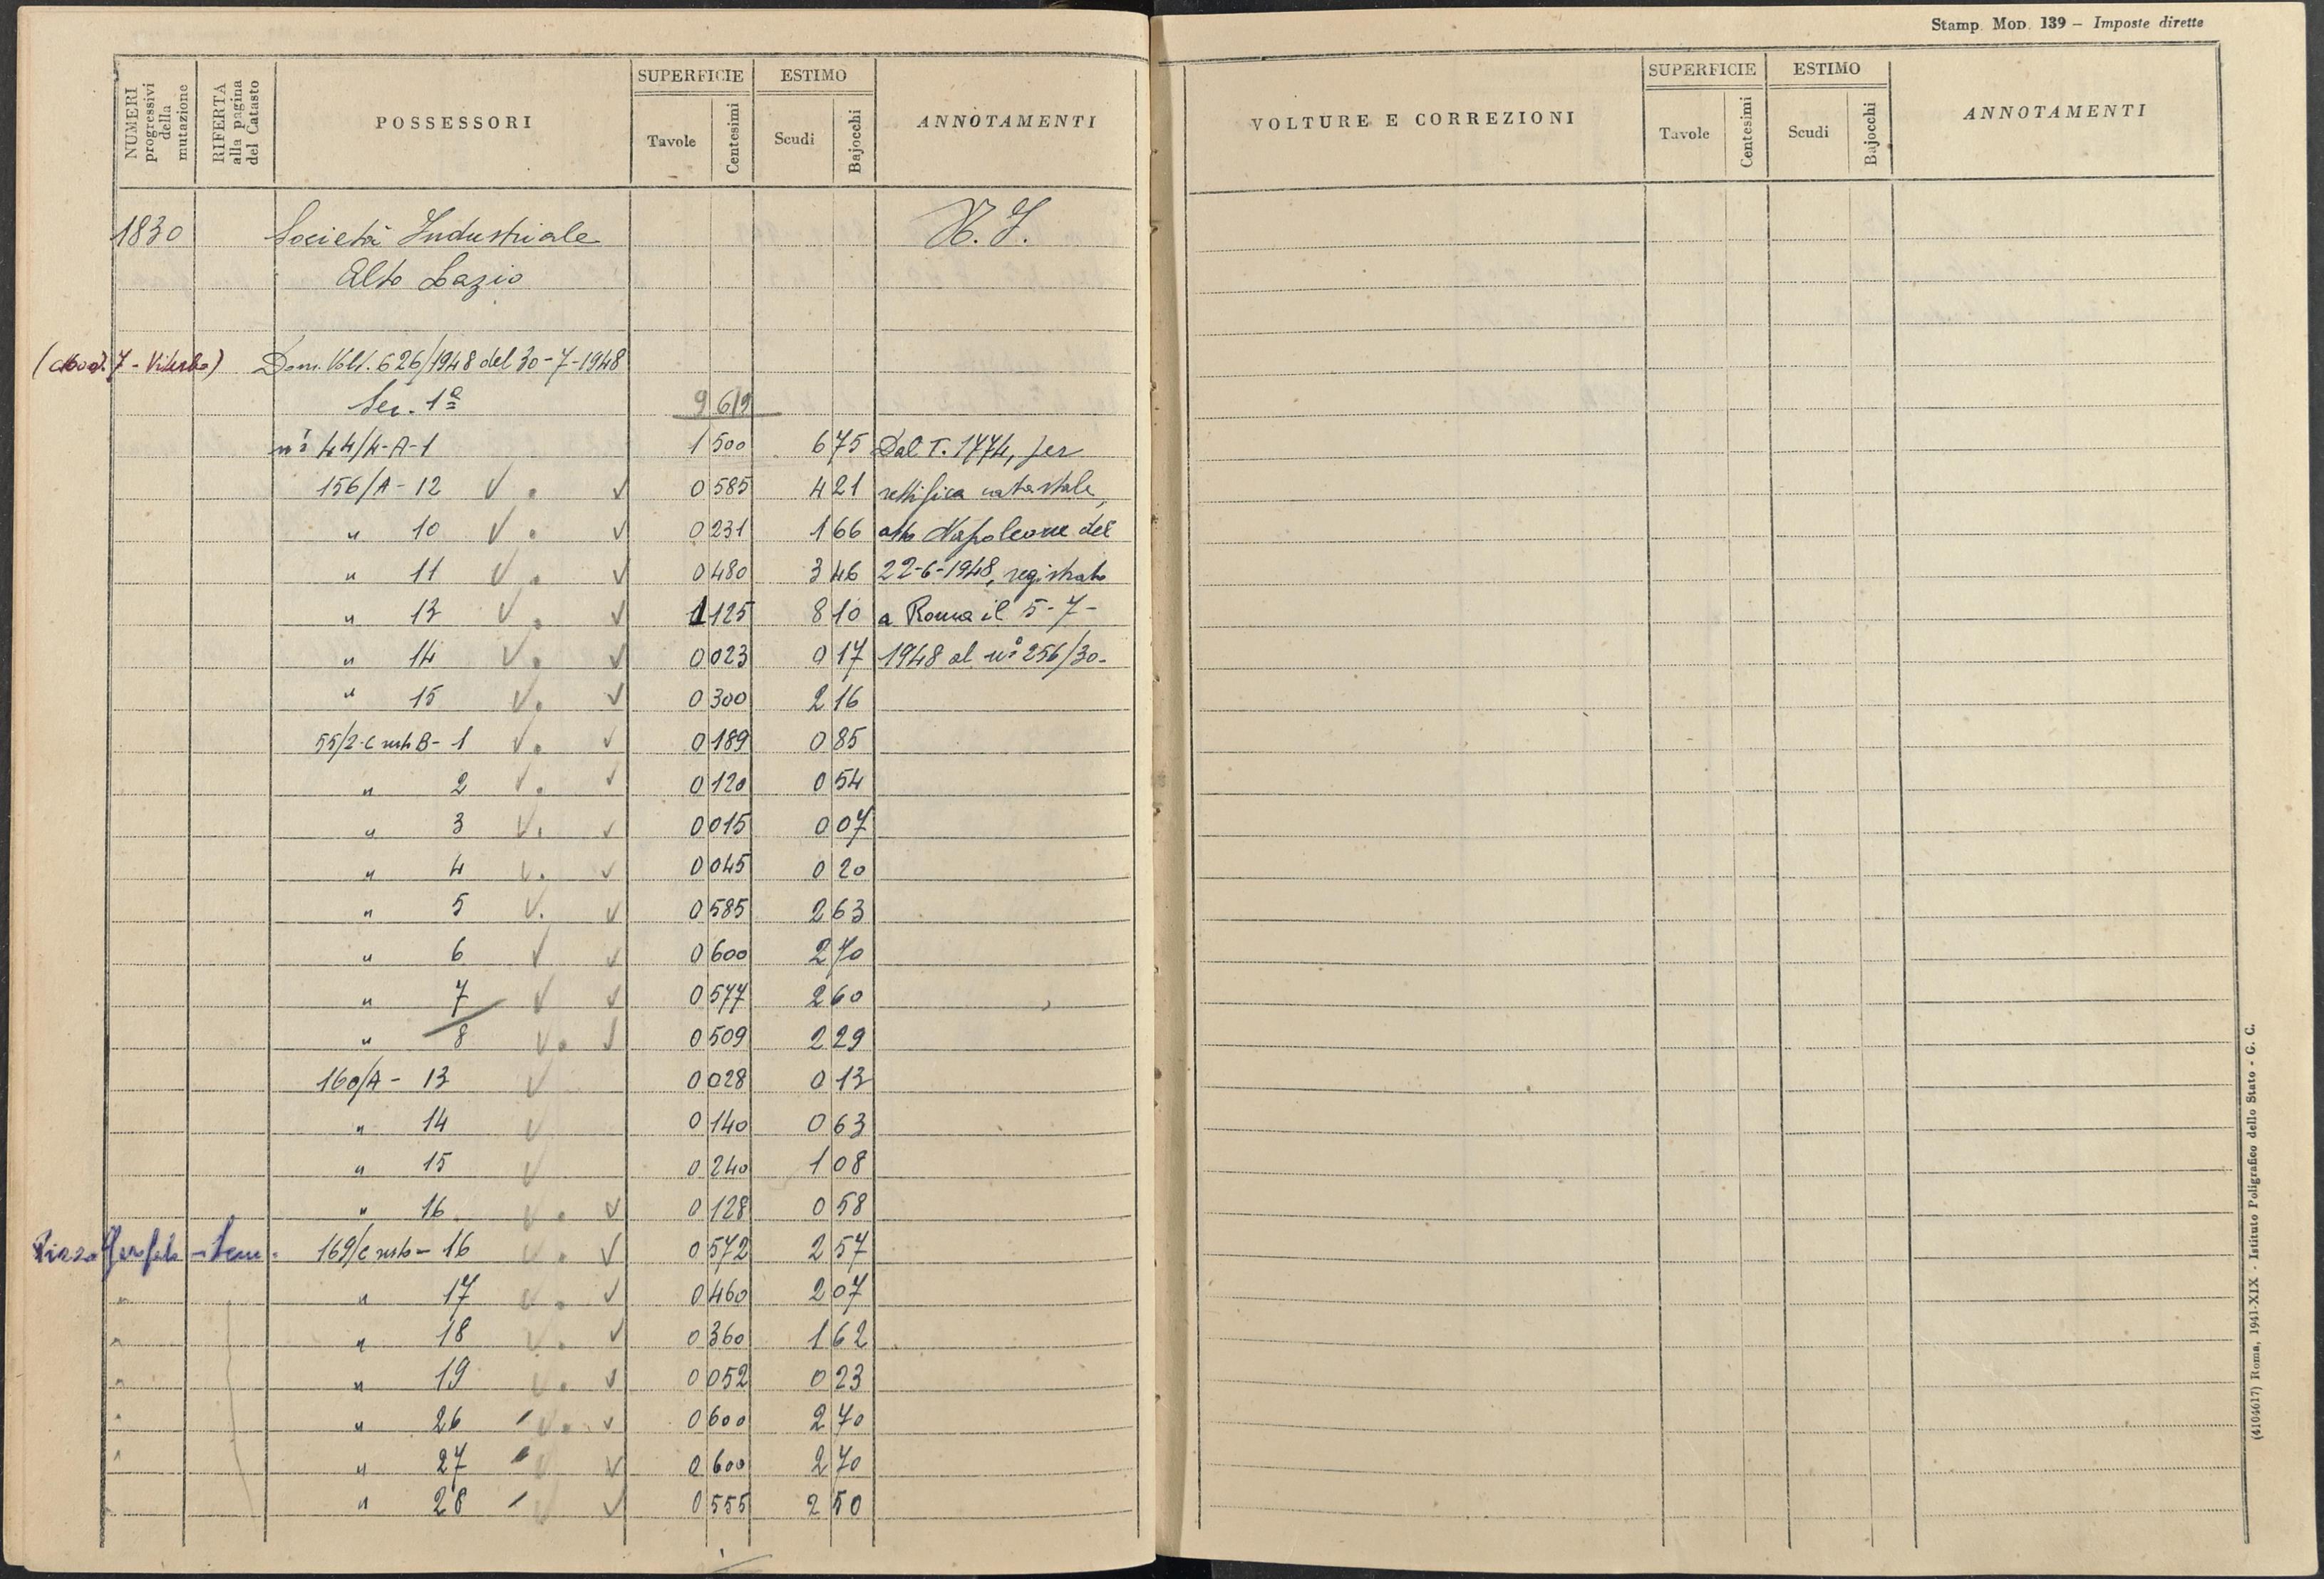 Stamp. Mod. 139 – Imposte dirette
NUMERI progressivi della mutazione
RIFERTA alla pagina del Catasto
POSSESSORI
SUPERFICIE
Tavole
Centesimi
ESTIMO
Scudi
Bajocchi
ANNOTAMENTI
1830 Società Industriale
Alto Lazio
(Mod. 7 - Viterbo) Dom. Volt. 626/1948 del 30-7-1948
Sez. 1ª 9 619
nⁱ 44/4-A-1 1 500 6 75 Dal T. 1774, per
156/A - 12 V . V 0 585 4 21 rettifica catastale,
" 10 V . V 0 231 1 66 atto Napoleone del
" 11 V . V 0 480 3 46 22-6-1948, registrato
" 13 V . V 1 125 8 10 a Roma il 5-7-
" 14 V . V 0 023 0 17 1948 al n° 256/30.
" 15 V . V 0 300 2 16
55/2-C resto B - 1 V . V 0 189 0 85
" 2 V . V 0 120 0 54
" 3 V . V 0 015 0 07
" 4 V . V 0 045 0 20
" 5 V . V 0 585 2 63
" 6 V V 0 600 2 70
" 7 V V 0 577 2 60
" 8 V . V 0 509 2 29
160/A - 13 V 0 028 0 13
" 14 V 0 140 0 63
" 15 V 0 240 1 08
" 16 V . V 0 128 0 58
169/C resto - 16 V . V 0 572 2 57
" " 17 V . V 0 460 2 07
" " 18 V . V 0 360 1 62
" " 19 V . V 0 052 0 23
" " 26 V . V 0 600 2 70
" " 27 V V 0 600 2 70
" 28 V V 0 555 2 50
VOLTURE E CORREZIONI
SUPERFICIE
Tavole
Centesimi
ESTIMO
Scudi
Bajocchi
ANNOTAMENTI
(4104617) Roma, 1941-XIX - Istituto Poligrafico dello Stato - G. C.